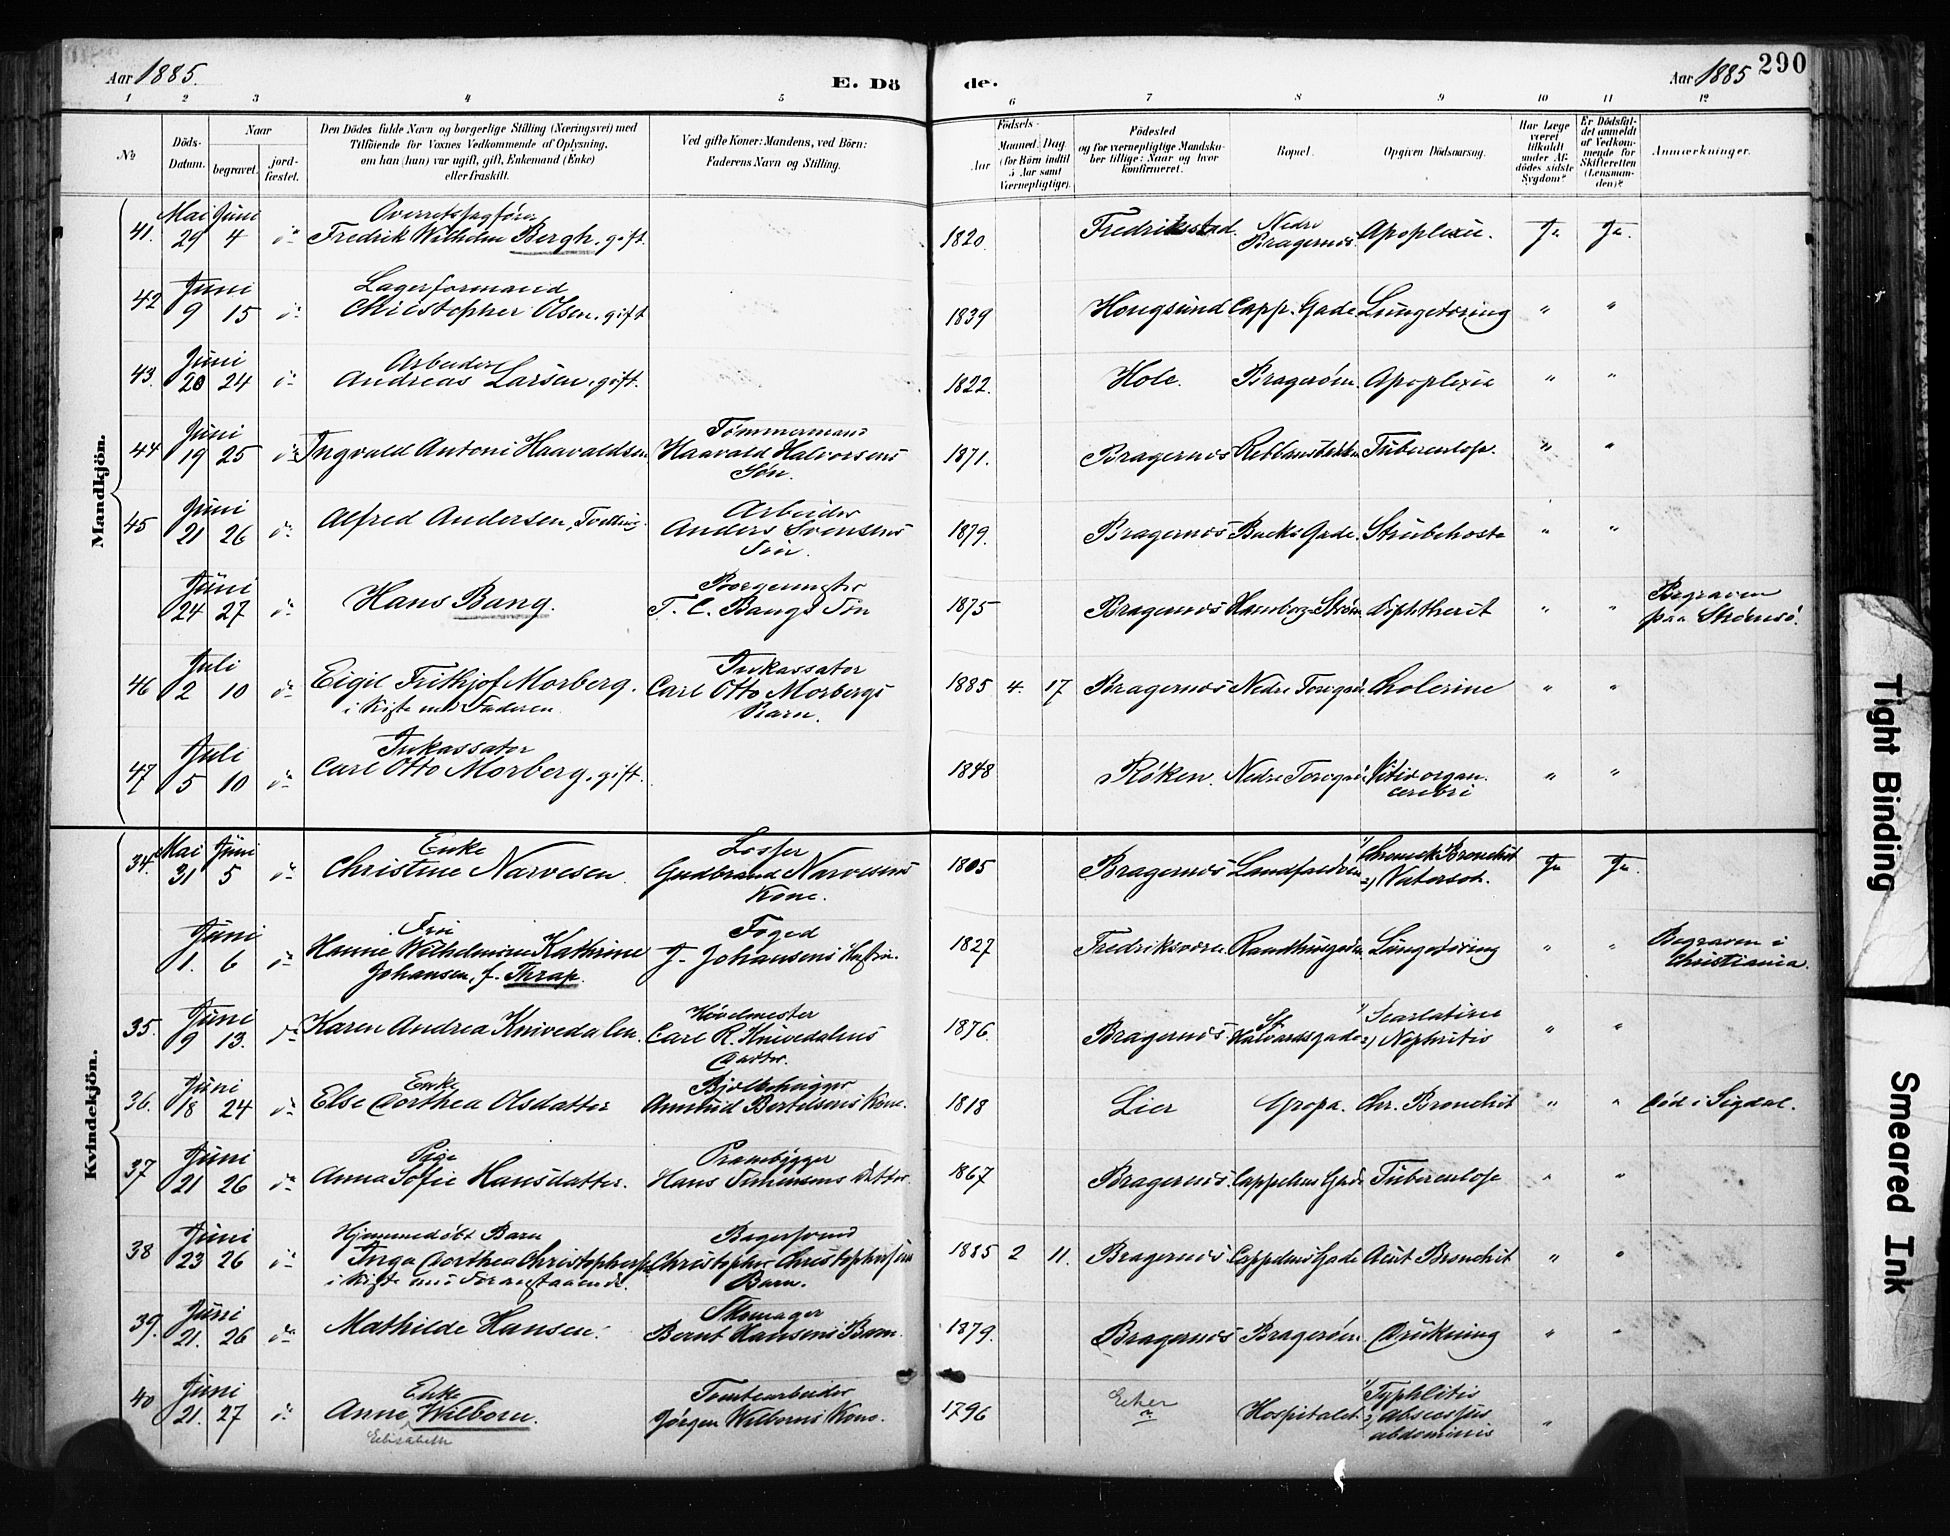 Aar 1885.
E. Dö
de.
Aar 1885
290
1 2 3 4 5 6 7 8 9 10 11 12
No
Döds-Datum.
Naar
begravet.
jord-fæstet.
Den Dödes fulde Navn og borgerlige Stilling (Næringsvei) med
Tilföiende for Voxnes Vedkommende af Oplysning,
om han (hun) var ugift, gift, Enkemand (Enke)
eller fraskilt.
Ved gifte Koner: Mandens, ved Börn:
Faderens Navn og Stilling.
Födsels-
Aar
Maaned. Dag
(for Börn indtil
5 Aar samt
Værnepligtige).
Födested
og for værnepligtige Mandska-
ber tillige: Naar og hvor
konfirmeret.
Bopæl.
Opgiven Dödsaarsag.
Har Læge
været
tilkaldt
under Af-
dödes sidste
Sygdom?
Er Dödsfal-
det anmeldt
af Vedkom-
mende for
Skifteretten
(Lensman-
den)?
Anmærkninger.
Mandkjön.
41. Mai 29 Juni 4 do Overretssagfører
Fredrik Wilhelm Bergh, gift. 1820. Fredrikstad. Nedre Bragernes. Apoplexie. Ja Ja.
42 Juni 9 15 do Lagerformand
Christopher Olsen, gift 1839 Hougsund Capp. Gade Lungetæring " "
43. Juni 20 24 do Arbeider
Andreas Larsen, gift. 1822. Hole. Bragerøen. Apoplexia " "
44 Juni 19 25 do Ingvald Antoni Haavaldsen Tömmermand
Haavald Halvorsens
Søn. 1871. Bragernes Tuberculose. " "
45 Juni 21 26 do Alfred Andersen, Tvilling. Arbeider
Anders Svensens
Søn. 1879. Bragernes Bucks Gade. Strubehoste " "
Juni 24 27 do Hans Bang. Borgermester
T. C. Bangs Søn 1875 Bragernes Diphtherit " " Begraven
paa Strömsö.
46 Juli 2 10 do Eigil Frithjof Morberg.
i Kiste med Faderen. Inkassator
Carl Otto Morbergs
Barn. 1885 4. 17 Bragernes Nedre Torvgade Cholerine " "
47 Juli 5 10 do Inkassator
Carl Otto Morberg, gift. 1848 Röken. Nedre Torvgade Vitio organ.
cerebri " "
Kvindekjön.
34. Mai 31 Juni 5 do Enke
Christine Narvesen. Losser
Gudbrand Narvesens
Kone. 1805 Bragernes Landfaldøen 1) Chronisk Bronchit
2) Vatersot. Ja Ja.
Juni 1. 6 do Fru
Hanne Wilhelmine Kathrine
Johansen, f. Thrap. Foged
J. Johansens Hustru. 1827 Fredriksværn. Lungetæring " " Begraven i
Christiania.
35. Juni 9 13. do Karen Andrea Knivedalen. Hövelmester
Carl R. Knivedalens
Datter. 1876. Bragernes St Halvardsgade 1) Scarlatina
2) Nephritis " "
36. Juni 18 24 do Enke
Else Dorthea Olsdatter Bjelkehugger
Amund Bertilsens Kone. 1818 Lier Gropa. Chr. Bronchit " " Död i Sigdal.
37 Juni 21 26 do Pige
Anna Sofie Hansdatter. Prambygger
Hans Simensens Datter. 1867 Bragernes. Cappelens Gade Tuberculose " "
38 Juni 23 26 do Hjemmedøbt Barn
Inga Dorthea Christophersen
i Kiste med Foranstaaende. Bagersvend
Christopher Christophersens
Barn. 1885 2 11. Bragernes Cappelens Gade Acut Bronchit " "
39. Juni 21. 26 do Mathilde Hansen. Skomager
Bernt Hansens Barn. 1879. Bragernes Bragerøen Drukning " "
40 Juni 21. 27 do Enke
Anne Wilborn.
Elisabeth Tomtearbeider
Jørgen Wilborns Kone. 1796 Eker Hospitalet 1) Typhlitis
2) Abscessus
abdominis "
Tight Binding
Smeared Ink